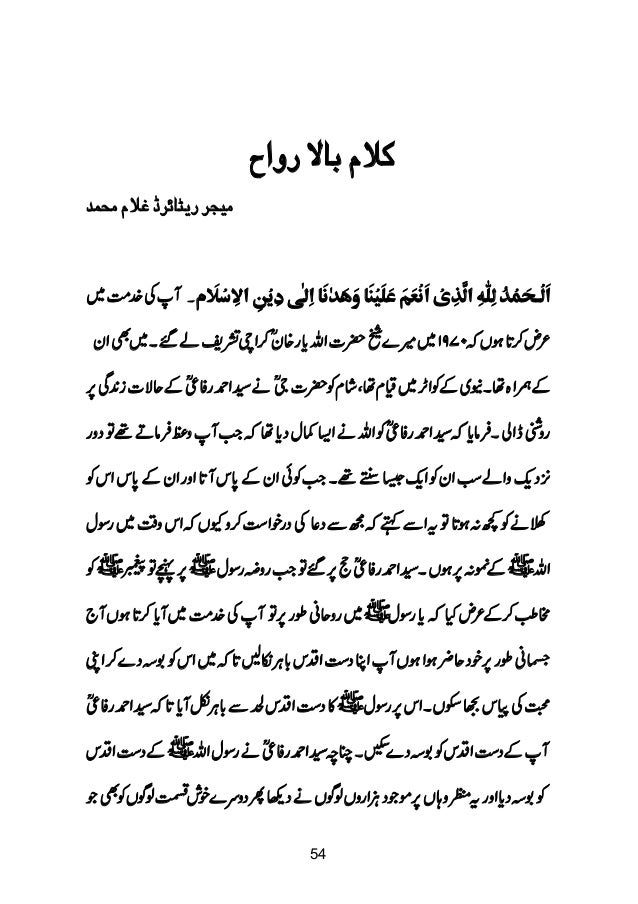 کلام بالا رواح
میجر ریٹائرڈ غلام محمد
اَلْحَمْدُ لِلّٰهِ الَّذِیْ اَنْعَمَ عَلَیْنَا وَهَدٰنَا اِلٰی دِیْنِ الْاِسْلَامِ۔ آپ کی خدمت میں
عرض کرتا ہوں کہ ۱۹۷۰ میں میرے شیخ حضرت اللہ یار خانؒ کراچی تشریف لے گئے۔ میں بھی ان
کے ہمراہ تھا۔ نیوی کے کواٹر میں قیام تھا، شام کو حضرت جیؒ نے سید احمد رفاعیؒ کے حالات زندگی پر
روشنی ڈالی۔ فرمایا کہ سید احمد رفاعیؒ کو اللہ نے ایسا کمال دیا تھا کہ جب آپ وعظ فرماتے تھے تو دور
نزدیک والے سب ان کو ایک جیسا سنتے تھے۔ جب کوئی ان کے پاس آتا اور ان کے پاس اس کو
کھلانے کو کچھ نہ ہوتا تو یہ اسے کہتے کہ مجھ سے دعا کی درخواست کرو کیوں کہ اس وقت میں رسول
اللہ ﷺ کے نمونہ پر ہوں۔ سید احمد رفاعیؒ حج پر گئے تو جب روضہ رسول ﷺ پر پہنچے تو پیغمبر ﷺ کو
مخاطب کر کے عرض کیا کہ یا رسول ﷺ میں روحانی طور پر تو آپ کی خدمت میں آیا کرتا ہوں آج
جسمانی طور پر خود حاضر ہوا ہوں آپ اپنا دست اقدس باہر نکالیں تا کہ میں اس کو بوسہ دے کر اپنی
محبت کی پیاس بجھا سکوں۔ اس پر رسول ﷺ کا دست اقدس لحد سے باہر نکل آیا تا کہ سید احمد رفاعیؒ
آپ کے دست اقدس کو بوسہ دے سکیں۔ چنانچہ سید احمد رفاعیؒ نے رسول اللہ ﷺ کے دست اقدس
کو بوسہ دیا اور یہ منظر وہاں پر موجود ہزاروں لوگوں نے دیکھا پھر دوسرے خوش قسمت لوگوں کو بھی جو
54